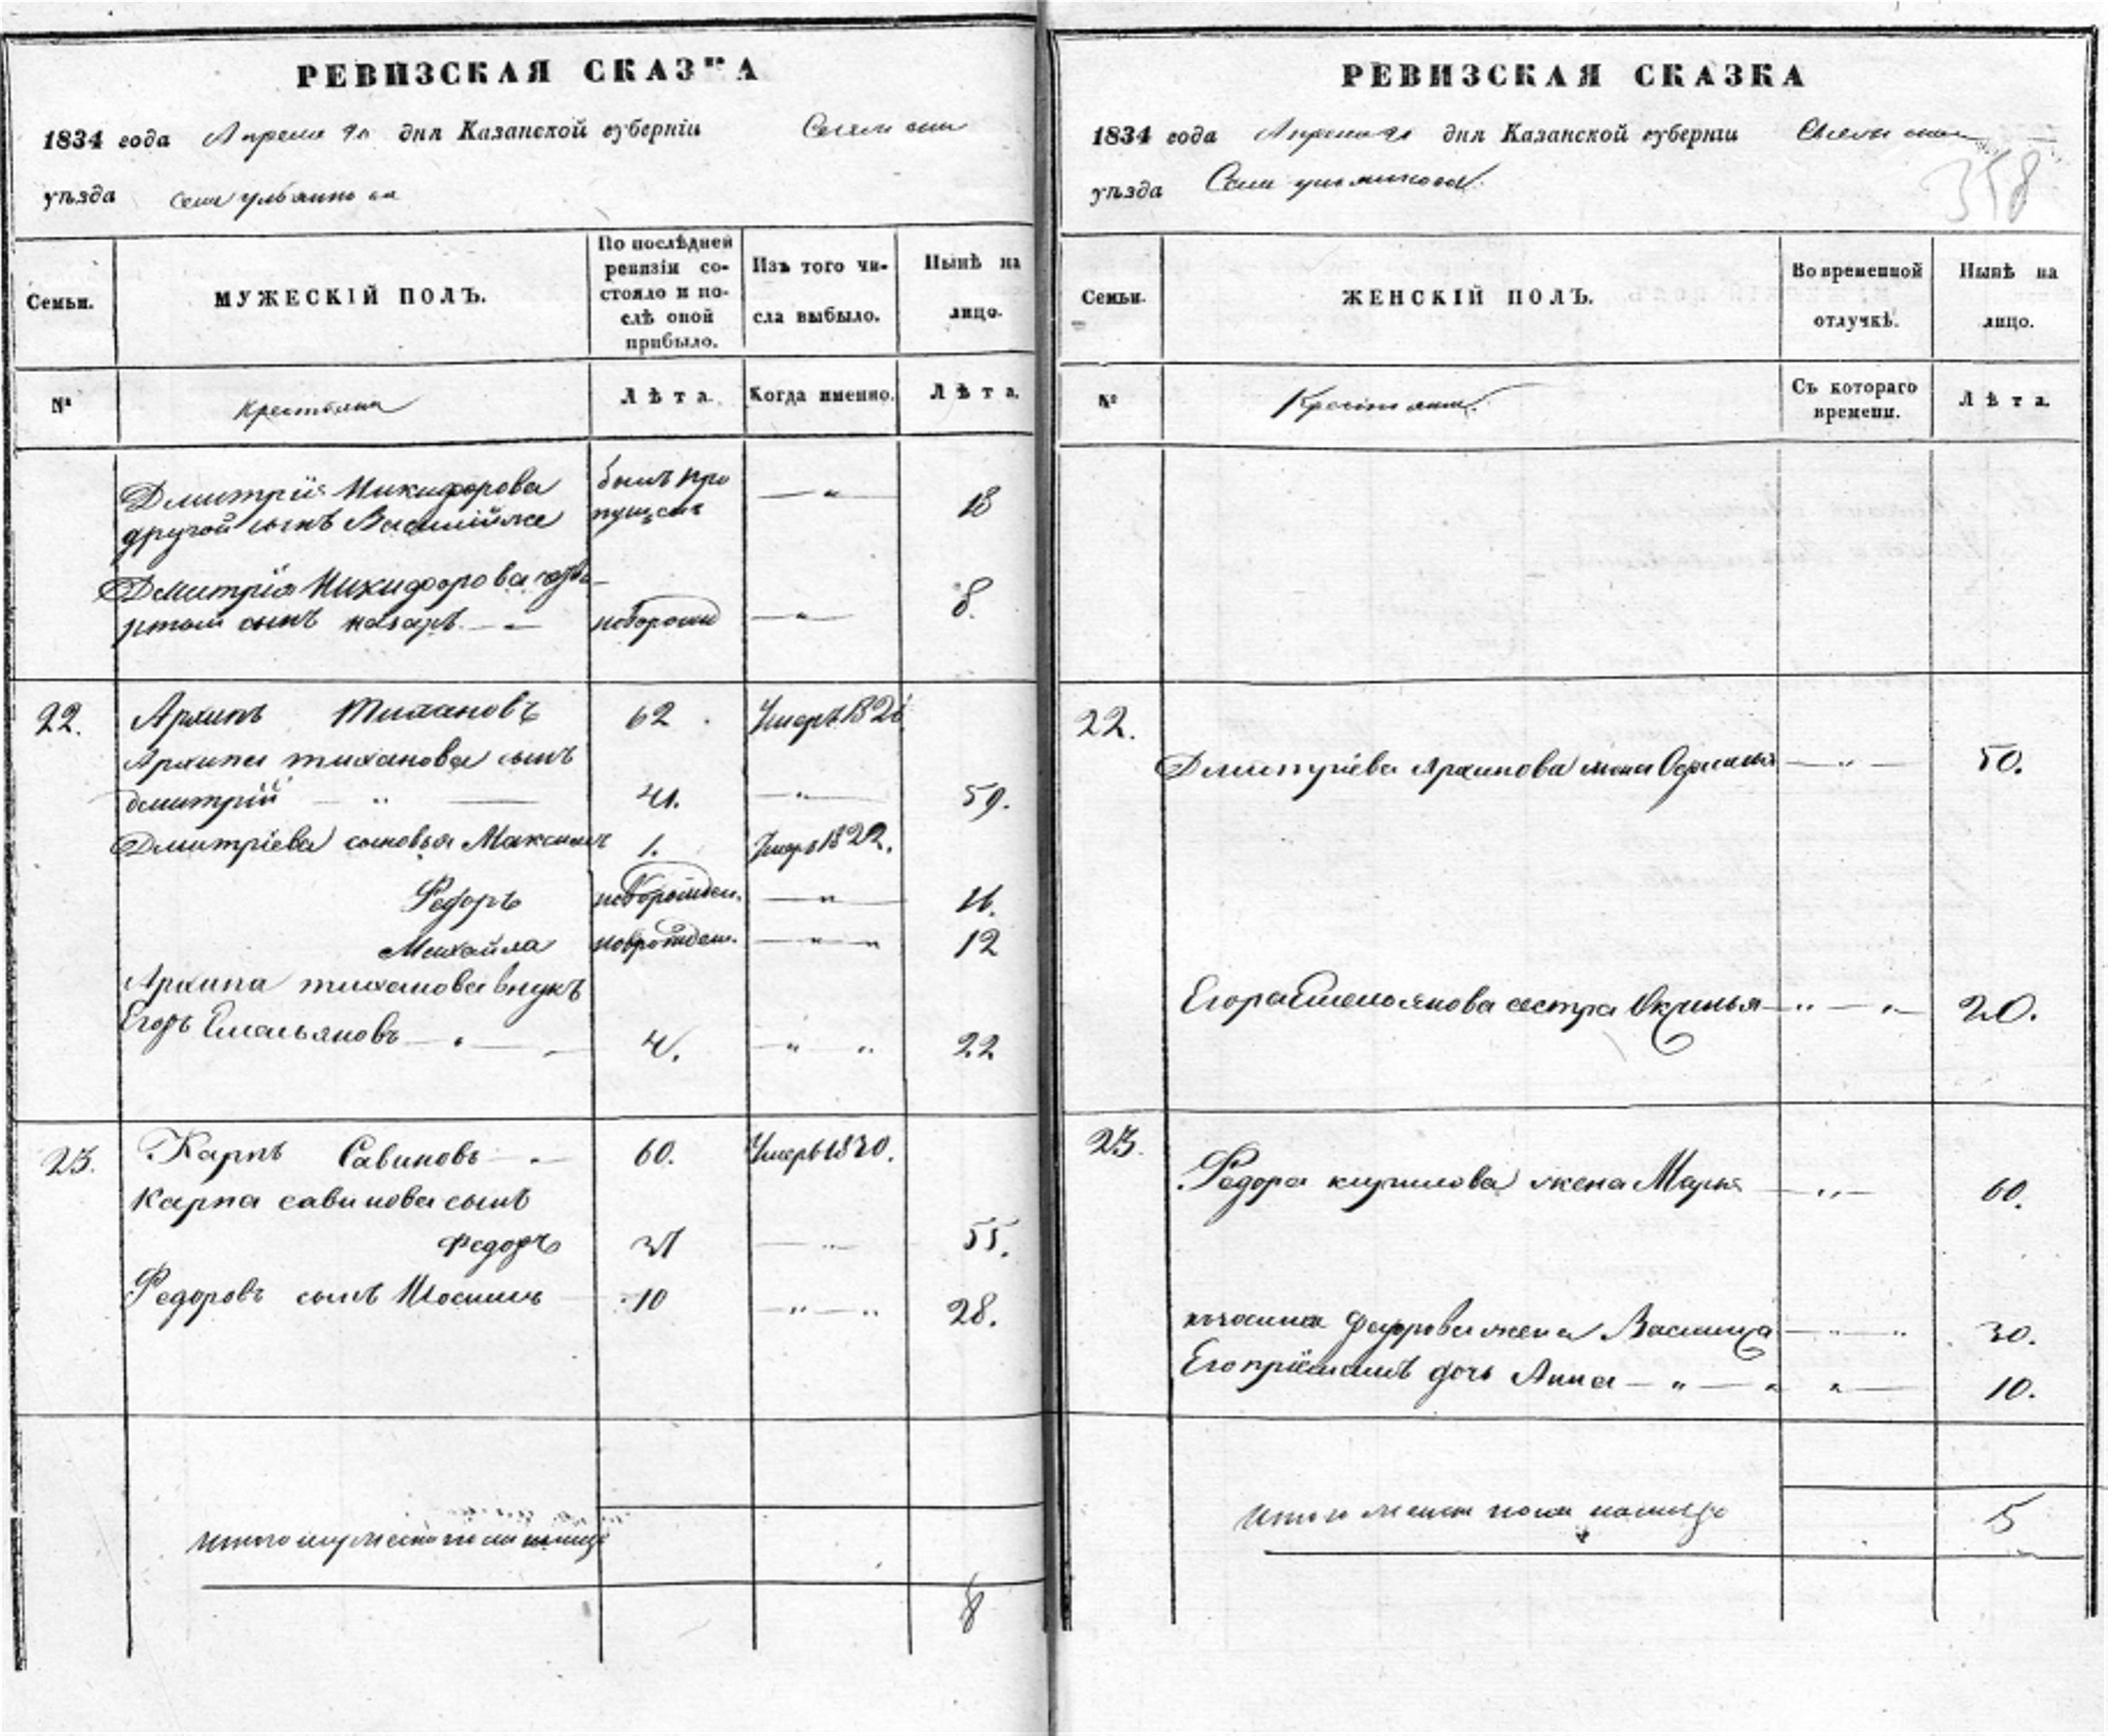 РЕВИЗСКАЯ СКАЗКА
1834 года Апреля дня Казанской губерніи
уѣзда
Семьи.
МУЖЕСКІЙ ПОЛЪ.
По послѣдней
ревизіи со-
стояло и по-
слѣ оной
прибыло.
Изъ того чи-
сла выбыло.
Нынѣ на
лицо.
№
Крестьяна
Лѣта.
Когда именно.
Лѣта.
Дмитрія Никифорова былъ про — " —
другой сынъ Василій же пущенъ 18
Дмитрія Никифорова
сынъ назаръ — " — новорожд — " — 8.
22. Архипъ Тихановъ 62. Умеръ 1826
Архипа тиханова сынъ
дмитрій — " — 41. — " — 59.
Дмитріева сыновья Максимъ 1. Умеръ 1822.
Федоръ новорожден. — " — 11.
Михайла новорожден. — " — " 12
Архипа тиханова внукъ
Егоръ Емельяновъ — " — 4. — " — " 22
23. Карпъ Савиновъ — " — 60. Умеръ 1830.
Карпа савинова сынъ
Федоръ 37 — " — 55.
Федоровъ сынъ 10 — " — " 28.
8
РЕВИЗСКАЯ СКАЗКА
1834 года Апреля дня Казанской губерніи
уѣзда
358
Семьи.
ЖЕНСКІЙ ПОЛЪ.
Во временной
отлучкѣ.
Нынѣ на
лицо.
№
Съ котораго
времени.
Лѣта.
22.
Дмитріева Архипова жена — " — 50.
Егора Емельянова сестра Окринья — " — " — 20.
23.
Федора жена Марья — " — 60.
Федорова жена Василиса — " — " 30.
Его дочь Анна — " — " " — 10.
5